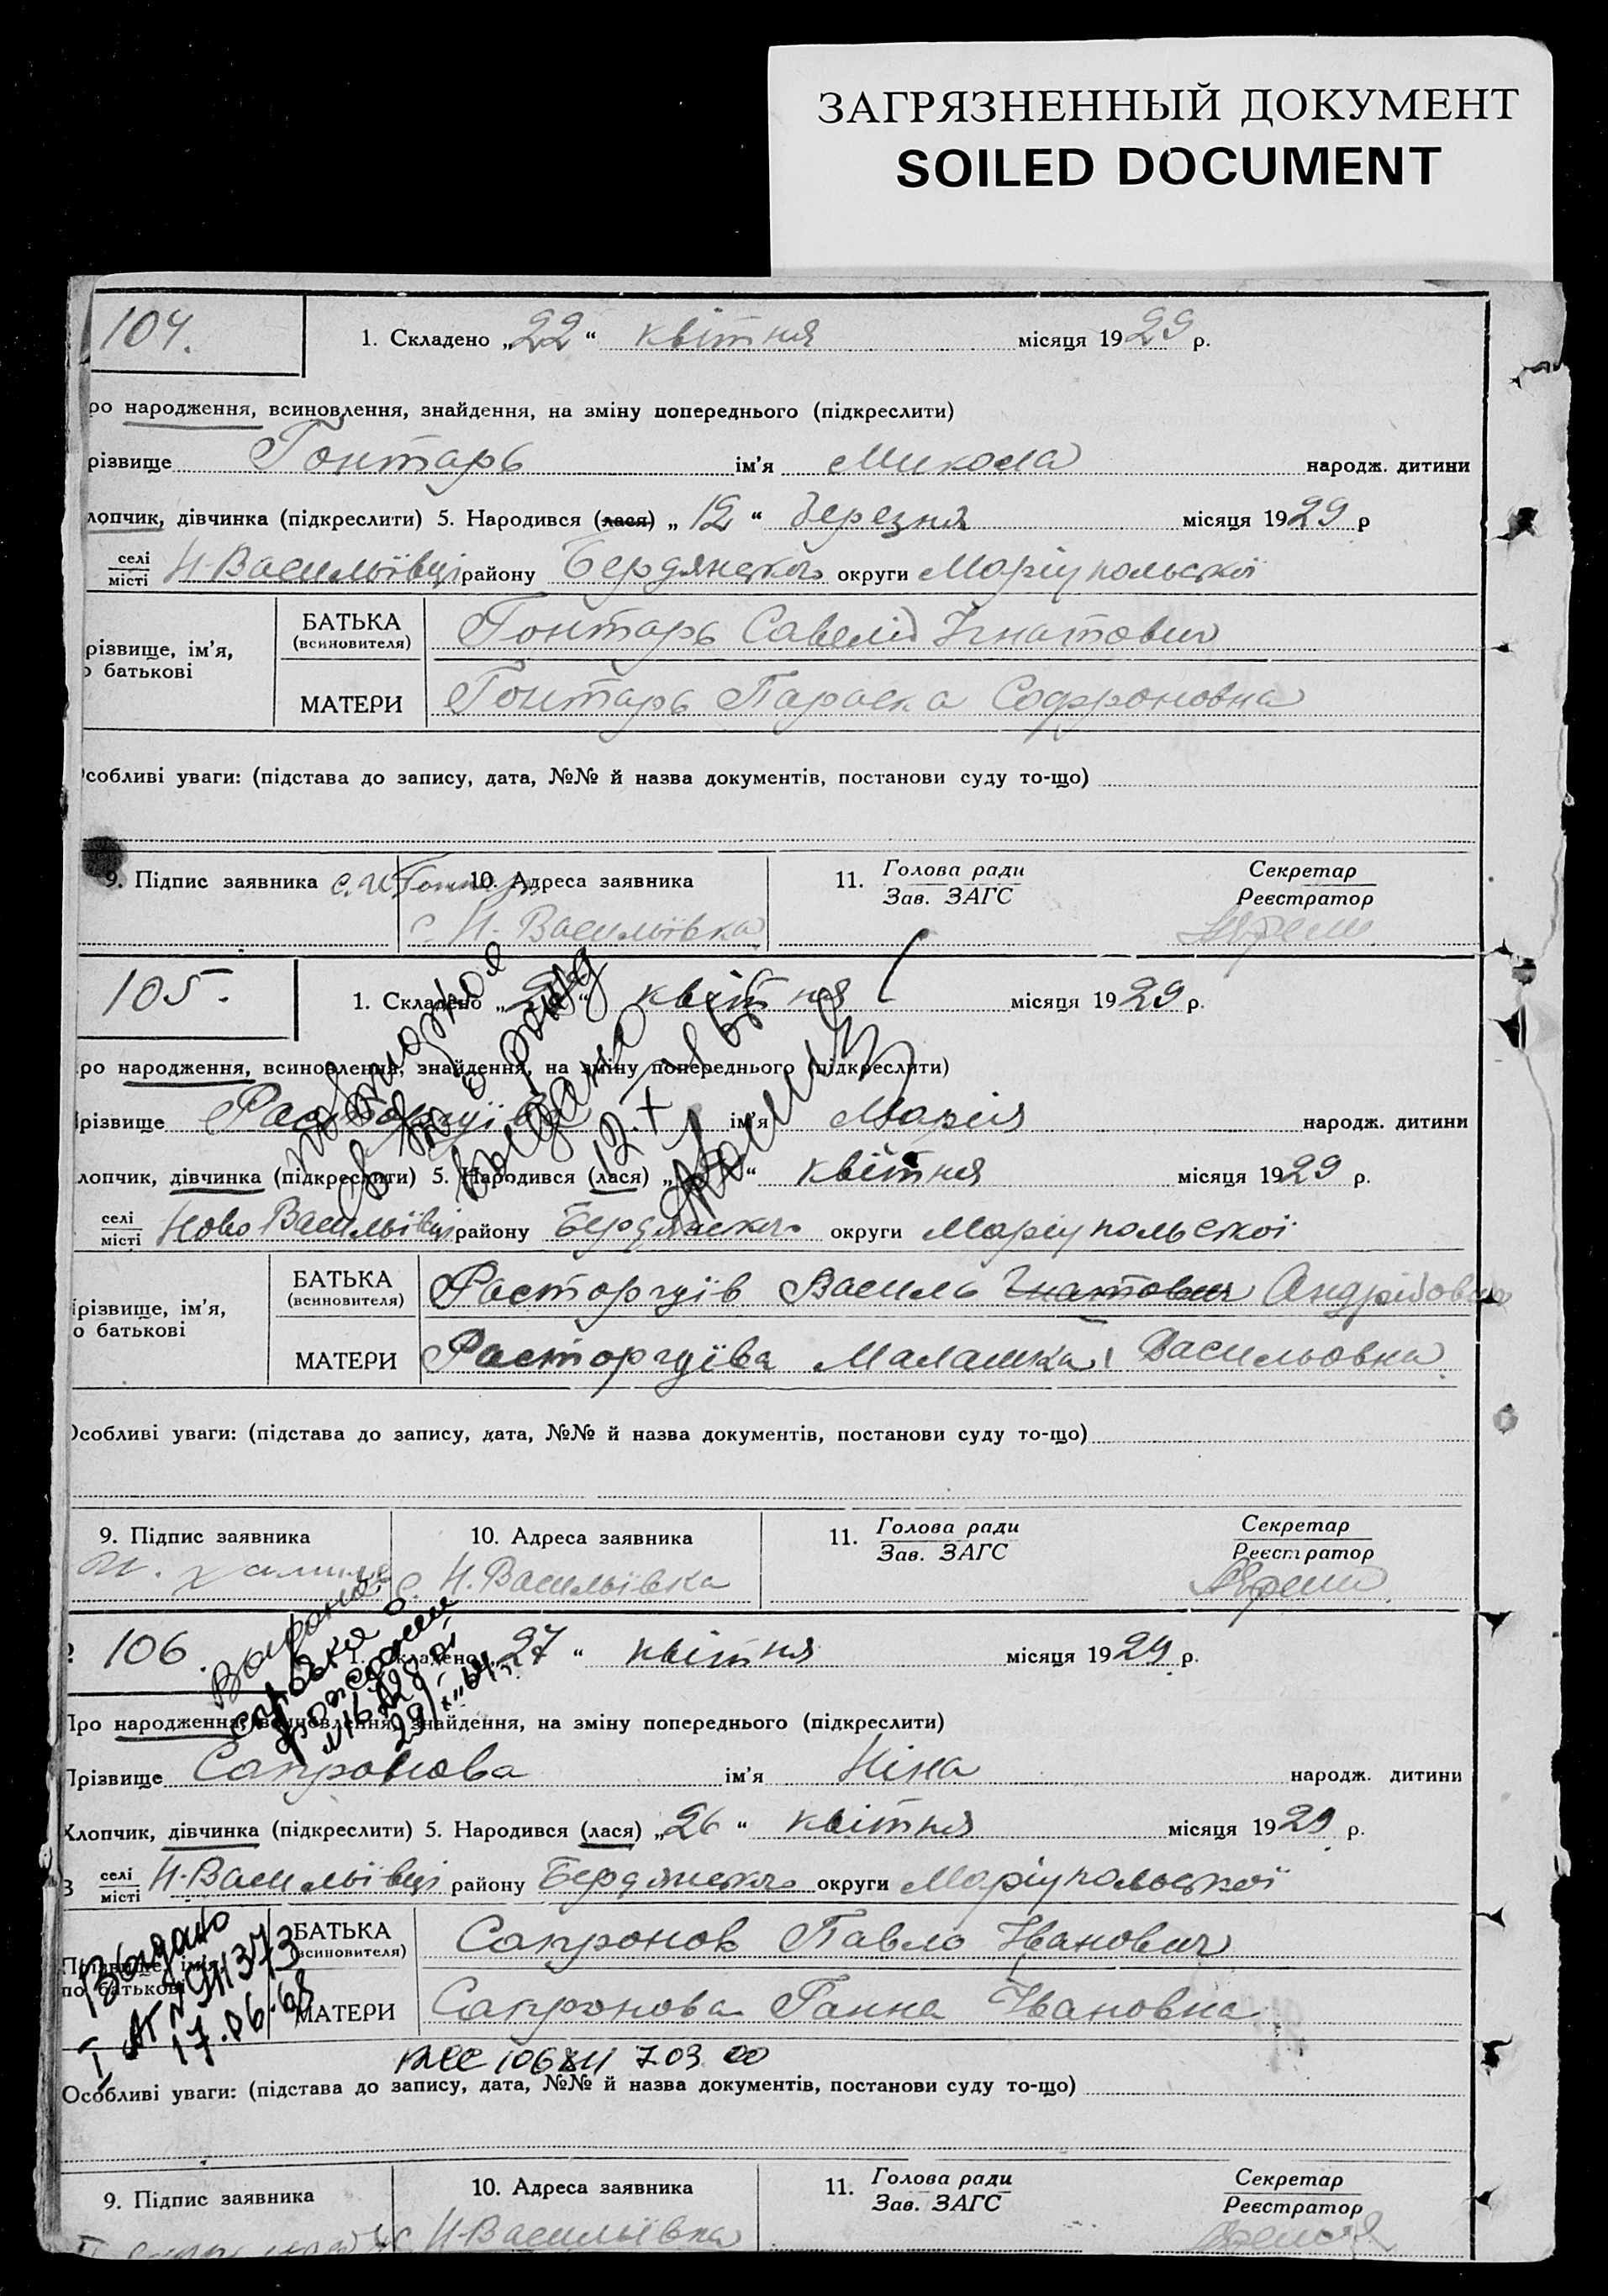 ЗАГРЯЗНЕННЫЙ ДОКУМЕНТ
SOILED DOCUMENT
104. 1. Складено „22“ квітня місяця 1929 р.
ро народження, всиновлення, знайдення, на зміну попереднього (підкреслити)
різвище Гонтарь ім'я Микола народж. дитини
лопчик, дівчинка (підкреслити) 5. Народився (лася) „12“ березня місяця 1929 р
селі
місті Н-Васильївці району Бердянсько округи Маріупольскої
різвище, ім'я,
о батькові
БАТЬКА
(всиновителя) Гонтарь Савелій Ігнатович
МАТЕРИ Гонтарь Параска Софроновна
собливі уваги: (підстава до запису, дата, №№ й назва документів, постанови суду то-що)
9. Підпис заявника С. И Гонтарь 10. Адреса заявника 11. Голова ради
Зав. ЗАГС Секретар
Реєстратор
с. Н-Васильївка
105. 1. Складено „ “ квітня місяця 1929 р.
повторное
выдано
12.X
ро народження, всиновлення, знайдення, на зміну попереднього (підкреслити)
різвище ім'я Марія народж. дитини
лопчик, дівчинка (підкреслити) 5. Народився (лася) „ “ квітня місяця 1929 р.
селі
місті Ново Васильївці району Бердянсько округи Маріупольскої
різвище, ім'я,
о батькові
БАТЬКА
(всиновителя) Расторгуїв Василь Ігнатович Андрійович
МАТЕРИ Расторгуїва Малашка Васильовна
Особливі уваги: (підстава до запису, дата, №№ й назва документів, постанови суду то-що)
9. Підпис заявника 10. Адреса заявника 11. Голова ради
Зав. ЗАГС Секретар
Реєстратор
с. Н. Васильївка
106. 1. Складено „27“ квітня місяця 1929 р.
справка о
рождении
Про народження, всиновлення, знайдення, на зміну попереднього (підкреслити)
Прізвище Сапронова ім'я Ніна народж. дитини
Хлопчик, дівчинка (підкреслити) 5. Народився (лася) „26“ квітня місяця 1929 р.
в селі
місті Н-Васильївці району Бердянсько округи Маріупольскої
Выдано
17.06.68
Прізвище, ім'я,
по батькові
БАТЬКА
(всиновителя) Сапронов Павло Іванович
МАТЕРИ Сапронова Ганна Івановна
Особливі уваги: (підстава до запису, дата, №№ й назва документів, постанови суду то-що)
9. Підпис заявника 10. Адреса заявника 11. Голова ради
Зав. ЗАГС Секретар
Реєстратор
с Н-Васильївка